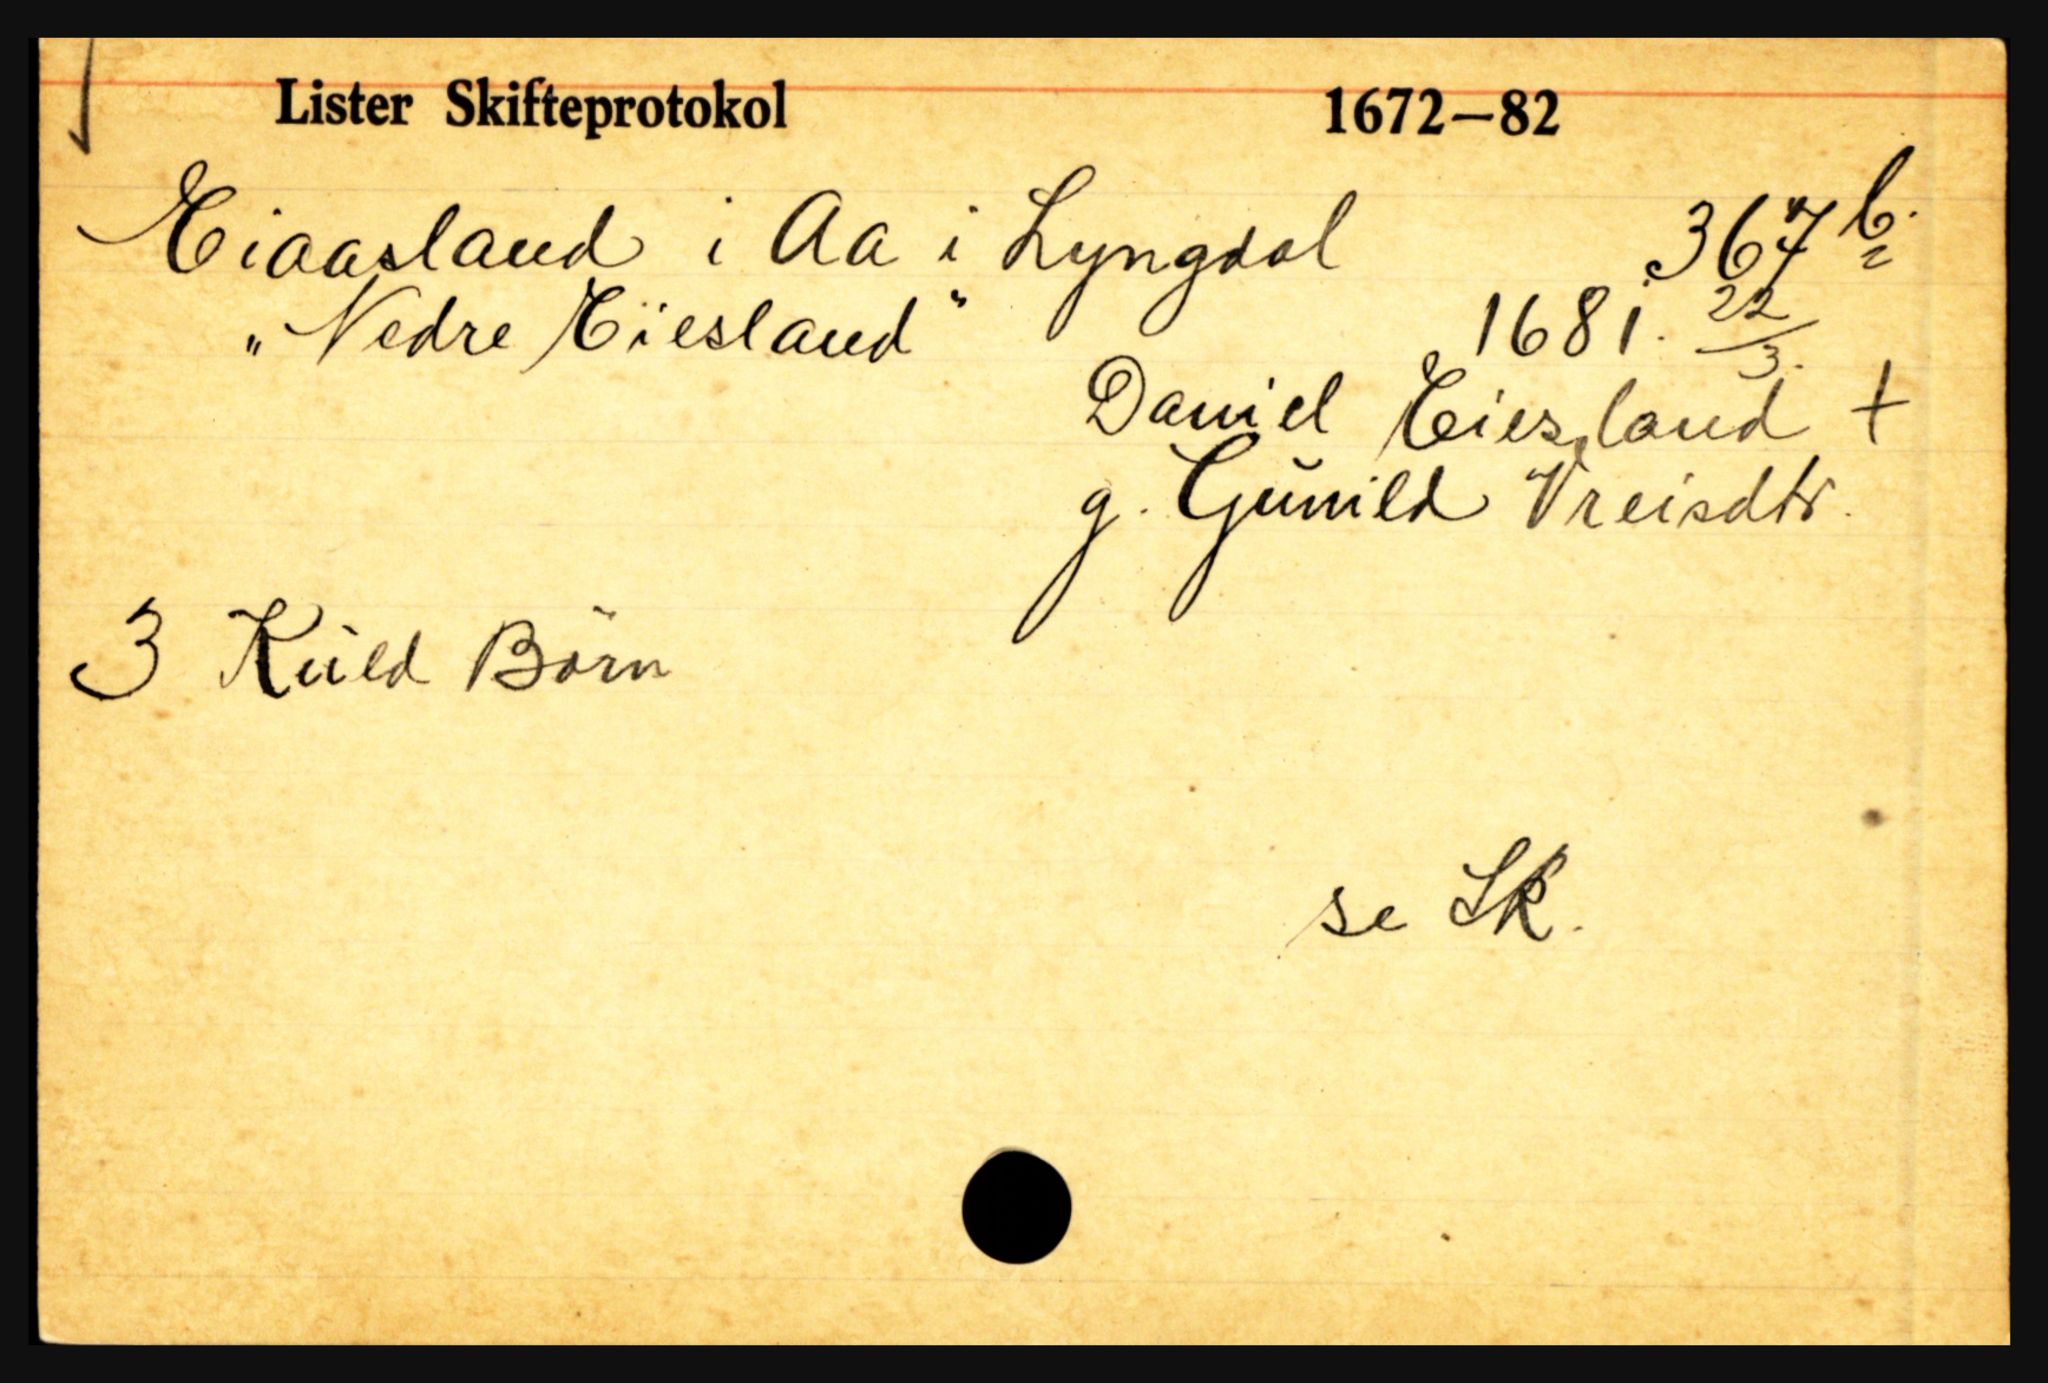 Lister Skifteprotokol 1672–82
Eiaasland i Aa i Lyngdal 367 b.
„Nedre Eiesland" 1681. 22/3.
Daniel Eiesland +
g. Gŭnild Vreisdtr.
3 Kŭld Börn
se Sk.